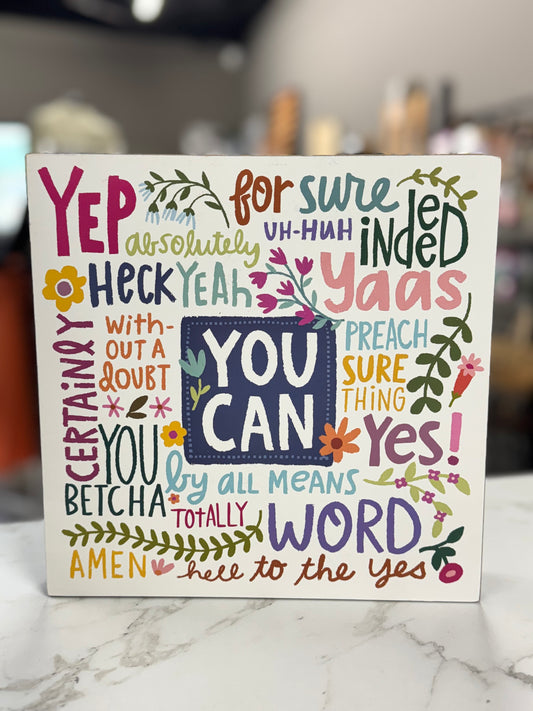 YEP
for sure
absolutely
UH-HUH
indeed
HECK YEAH
yaas
CERTAINLY
WITH-
OUT A
DOUBT
YOU
CAN
PREACH
SURE
THING
YOU
BETCHA
Yes!
by ALL MEANS
TOTALLY
WORD
AMEN
hell to the yes